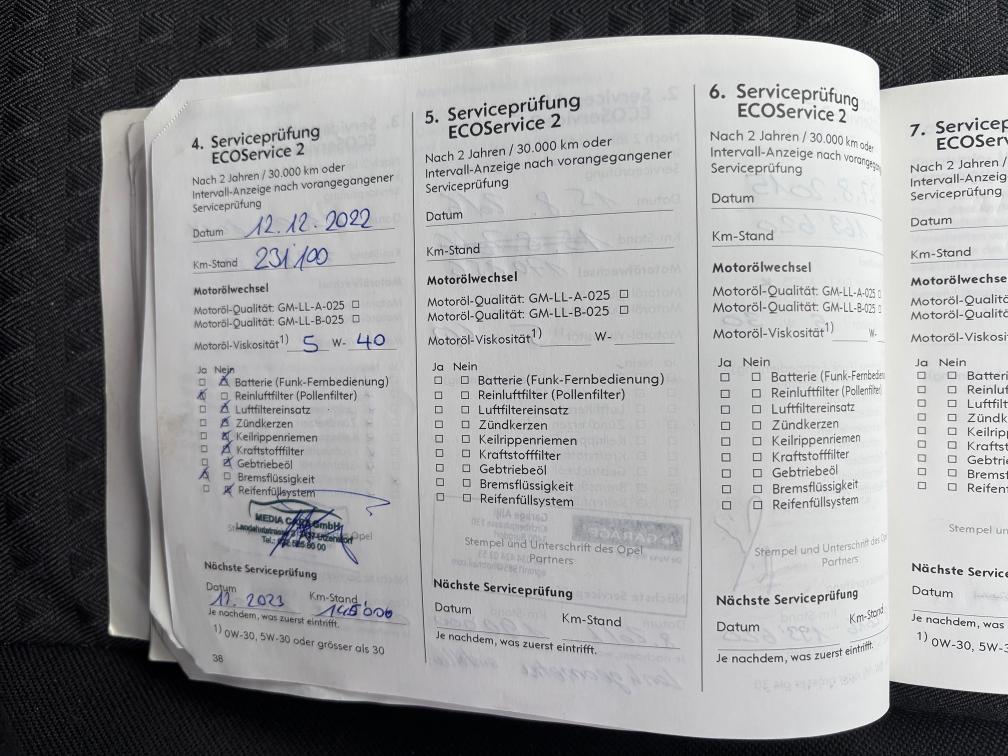 4. Serviceprüfung
ECOService 2
Nach 2 Jahren / 30.000 km oder
Intervall-Anzeige nach vorangegangener
Serviceprüfung
Datum 12.12.2022
Km-Stand 231'100
Motorölwechsel
Motoröl-Qualität: GM-LL-A-025 ☐
Motoröl-Qualität: GM-LL-B-025 ☐
Motoröl-Viskosität1) 5 W- 40
Ja Nein
☐ ☒ Batterie (Funk-Fernbedienung)
☒ ☐ Reinluftfilter (Pollenfilter)
☐ ☒ Luftfiltereinsatz
☐ ☒ Zündkerzen
☐ ☒ Keilrippenriemen
☐ ☒ Kraftstofffilter
☐ ☒ Gebtriebeöl
☒ ☐ Bremsflüssigkeit
☐ ☒ Reifenfüllsystem
MEDIA GmbH
Opel
Nächste Serviceprüfung
Datum Km-Stand
11. 2023 145'000
Je nachdem, was zuerst eintrifft.
1) 0W-30, 5W-30 oder grösser als 30
38
5. Serviceprüfung
ECOService 2
Nach 2 Jahren / 30.000 km oder
Intervall-Anzeige nach vorangegangener
Serviceprüfung
Datum
Km-Stand
Motorölwechsel
Motoröl-Qualität: GM-LL-A-025 ☐
Motoröl-Qualität: GM-LL-B-025 ☐
Motoröl-Viskosität1) W-
Ja Nein
☐ ☐ Batterie (Funk-Fernbedienung)
☐ ☐ Reinluftfilter (Pollenfilter)
☐ ☐ Luftfiltereinsatz
☐ ☐ Zündkerzen
☐ ☐ Keilrippenriemen
☐ ☐ Kraftstofffilter
☐ ☐ Gebtriebeöl
☐ ☐ Bremsflüssigkeit
☐ ☐ Reifenfüllsystem
Stempel und Unterschrift des Opel
Partners
Nächste Serviceprüfung
Datum Km-Stand
Je nachdem, was zuerst eintrifft.
6. Serviceprüfung
ECOService 2
Nach 2 Jahren / 30.000 km oder
Intervall-Anzeige nach vorangeg
Serviceprüfung
Datum
Km-Stand
Motorölwechsel
Motoröl-Qualität: GM-LL-A-025
Motoröl-Qualität: GM-LL-B-025
Motoröl-Viskosität1) W-
Ja Nein
☐ ☐ Batterie (Funk-Fernbedien
☐ ☐ Reinluftfilter (Pollenfilter)
☐ ☐ Luftfiltereinsatz
☐ ☐ Zündkerzen
☐ ☐ Keilrippenriemen
☐ ☐ Kraftstofffilter
☐ ☐ Gebtriebeöl
☐ ☐ Bremsflüssigkeit
☐ ☐ Reifenfüllsystem
Stempel und Unterschrift des Op
Partners
Nächste Serviceprüfung
Datum Km-Stand
Je nachdem, was zuerst eintrifft.
7. Servicep
ECOSe
Nach 2 Jahren /
Intervall-Anzeige
Serviceprüfung
Datum
Km-Stand
Motorölwechse
Motoröl-Qualitä
Motoröl-Qualitä
Motoröl-Viskosi
Ja Nein
☐ ☐ Batteri
☐ ☐ Reinluf
☐ ☐ Luftfil
☐ ☐ Zündk
☐ ☐ Keilrip
☐ ☐ Krafts
☐ ☐ Gebtri
☐ ☐ Brems
☐ ☐ Reifen
Stempel und
Nächste Servic
Datum
Je nachdem, was
1) 0W-30, 5W-3